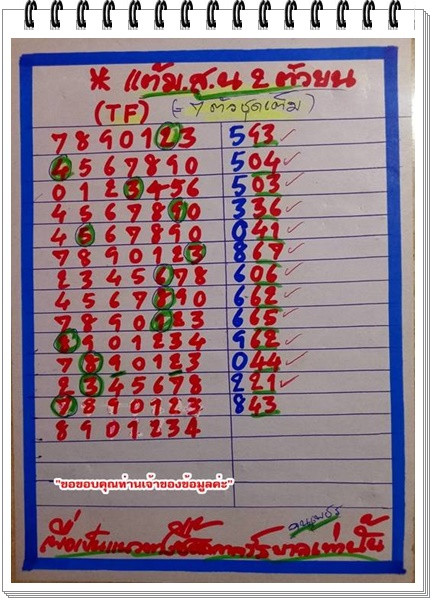 * แต้ม.ส.น 2 ตัวบน
(TF) (= 7 ตัวชุดเต็ม)
7 8 9 0 1 2 3 593 ✓
4 5 6 7 8 9 0 504 ✓
0 1 2 3 4 5 6 503 ✓
4 5 6 7 8 9 0 336 ✓
4 5 6 7 8 9 0 041 ✓
7 8 9 0 1 2 3 867 ✓
2 3 4 5 6 7 8 606 ✓
4 5 6 7 8 9 0 662 ✓
7 8 9 0 1 2 3 665 ✓
8 9 0 1 2 3 4 962 ✓
7 8 9 0 1 2 3 044 ✓
2 3 4 5 6 7 8 221 ✓
7 8 9 0 1 2 3 843
8 9 0 1 2 3 4
"ขอขอบคุณท่านเจ้าของข้อมูลค่ะ"
เพื่อเป็นแนวทาง เท่านั้น